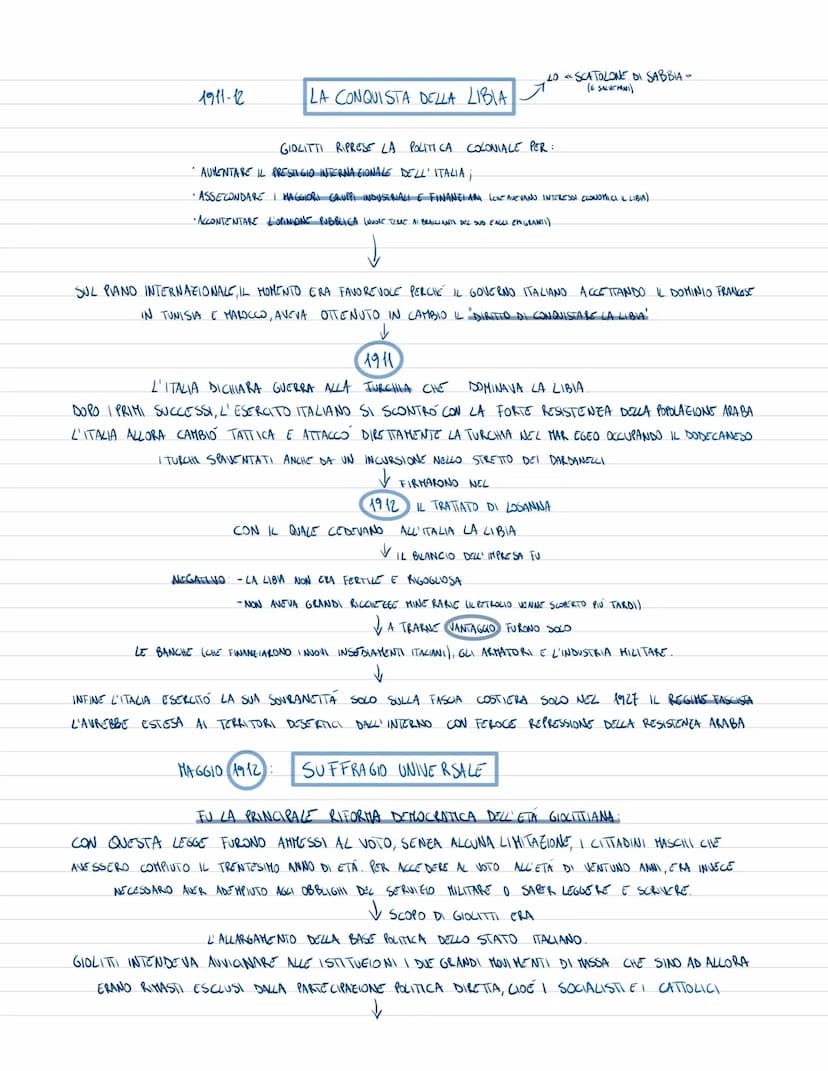 1911-12 LA CONQUISTA DELLA LIBIA LO «SCATOLONE DI SABBIA»
(G SALVEMINI)
GIOLITTI RIPRESE LA POLITICA COLONIALE PER:
· AUMENTARE IL PRESTIGIO INTERNAZIONALE DELL'ITALIA;
· ASSECONDARE I MAGGIORI GRUPPI INDUSTRIALI E FINANZIARI (CHE AVEVANO INTERESSI ECONOMICI IL LIBIA)
· ACCONTENTARE L'OPINIONE PUBBLICA (NUOVE TERRE AI BRACCIANTI DEL SUD E AGLI EMIGRANTI)
↓
SUL PIANO INTERNAZIONALE, IL MOMENTO ERA FAVOREVOLE PERCHÉ IL GOVERNO ITALIANO ACCETTANDO IL DOMINIO FRANCESE
IN TUNISIA E MAROCCO, AVEVA OTTENUTO IN CAMBIO IL "DIRITTO DI CONQUISTARE LA LIBIA"
↓
1911
L'ITALIA DICHIARA GUERRA ALLA TURCHIA CHE DOMINAVA LA LIBIA
DOPO I PRIMI SUCCESSI, L'ESERCITO ITALIANO SI SCONTRÓ CON LA FORTE RESISTENZA DELLA POPOLAZIONE ARABA
L'ITALIA ALLORA CAMBIÓ TATTICA E ATTACCÓ DIRETTAMENTE LA TURCHIA NEL MAR EGEO OCCUPANDO IL DODECANESO
I TURCHI SPAVENTATI ANCHE DA UN INCURSIONE NELLO STRETTO DEI DARDANELLI
↓ FIRMARONO NEL
1912 IL TRATTATO DI LOSANNA
CON IL QUALE CEDEVANO ALL'ITALIA LA LIBIA
↓ IL BILANCIO DELL'IMPRESA FU
NEGATIVO: - LA LIBIA NON ERA FERTILE E RIGOGLIOSA
- NON AVEVA GRANDI RICCHEZZE MINERARIE (IL PETROLIO VENNE SCOPERTO PIÚ TARDI)
↓ A TRARNE VANTAGGIO FURONO SOLO
LE BANCHE (CHE FINANZIARONO I NUOVI INSEDIAMENTI ITALIANI), GLI ARMATORI E L'INDUSTRIA MILITARE.
↓
INFINE L'ITALIA ESERCITÓ LA SUA SOVRANITÁ SOLO SULLA FASCIA COSTIERA SOLO NEL 1927 IL REGIME FASCISTA
L'AVREBBE ESTESA AI TERRITORI DESERTICI DALL'INTERNO CON FEROCE REPRESSIONE DELLA RESISTENZA ARABA
MAGGIO 1912: SUFFRAGIO UNIVERSALE
FU LA PRINCIPALE RIFORMA DEMOCRATICA DELL'ETÁ GIOLITTIANA:
CON QUESTA LEGGE FURONO AMMESSI AL VOTO, SENZA ALCUNA LIMITAZIONE, I CITTADINI MASCHI CHE
AVESSERO COMPIUTO IL TRENTESIMO ANNO DI ETÁ. PER ACCEDERE AL VOTO ALL'ETÁ DI VENTUNO ANNI, ERA INVECE
NECESSARIO AVER ADEMPIUTO AGLI OBBLIGHI DEL SERVIZIO MILITARE O SAPER LEGGERE E SCRIVERE.
↓ SCOPO DI GIOLITTI ERA
L'ALLARGAMENTO DELLA BASE POLITICA DELLO STATO ITALIANO.
GIOLITTI INTENDEVA AVVICINARE ALLE ISTITUZIONI I DUE GRANDI MOVIMENTI DI MASSA CHE SINO AD ALLORA
ERANO RIMASTI ESCLUSI DALLA PARTECIPAZIONE POLITICA DIRETTA, CIOÉ I SOCIALISTI E I CATTOLICI
↓